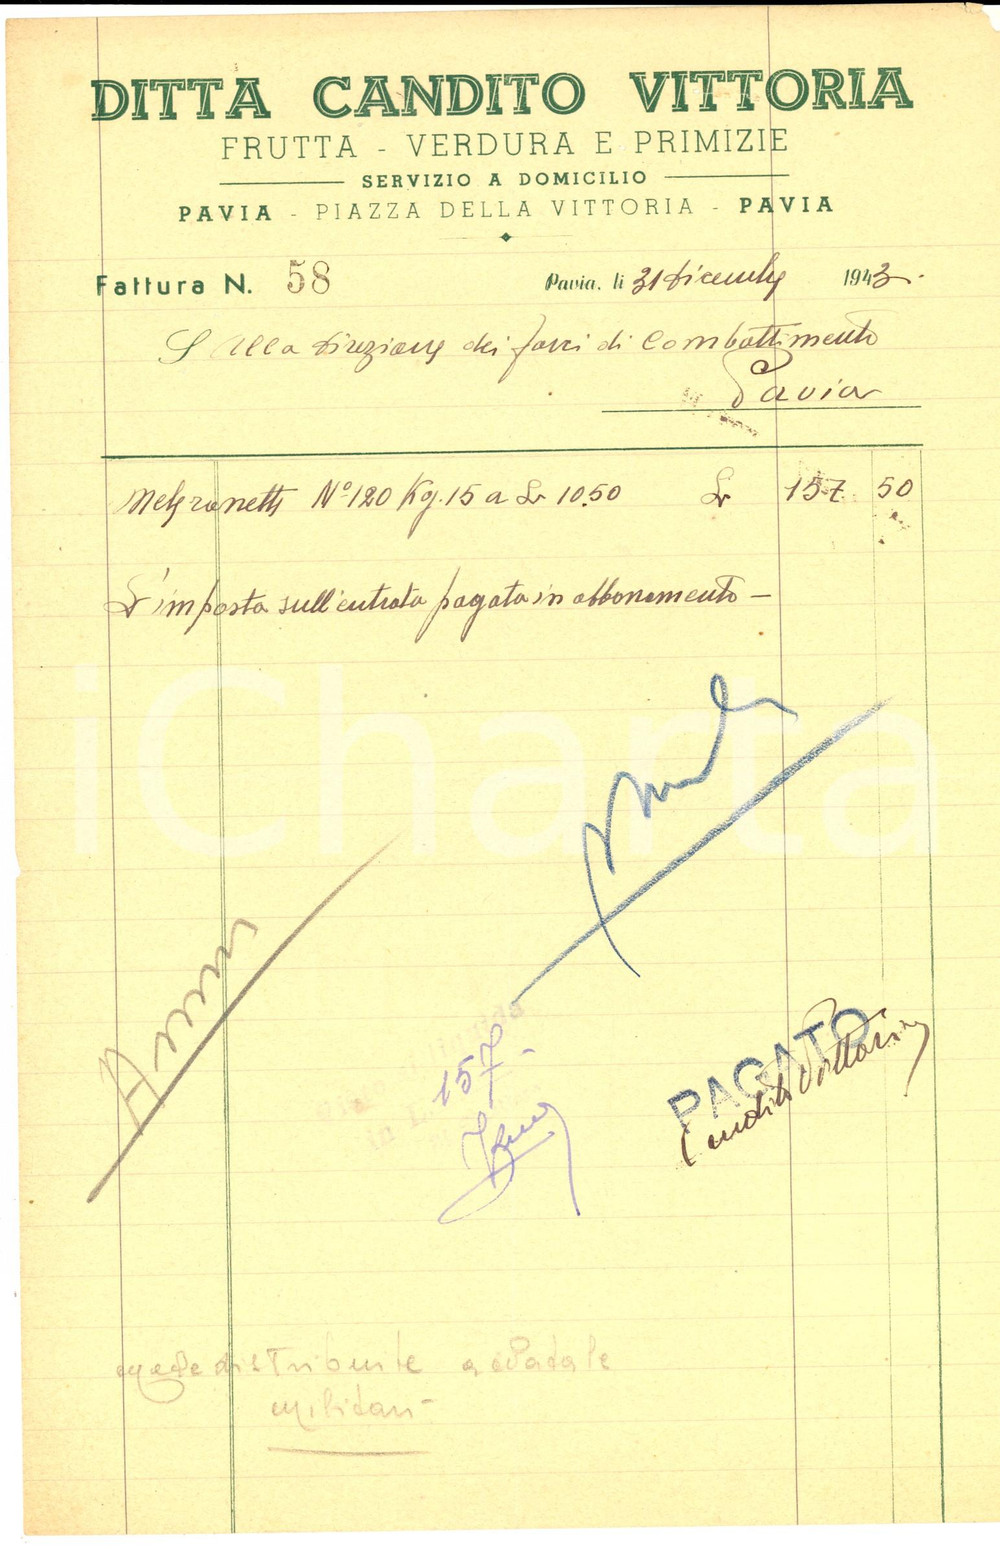 DITTA CANDITO VITTORIA
FRUTTA - VERDURA E PRIMIZIE
SERVIZIO A DOMICILIO
PAVIA - PIAZZA DELLA VITTORIA - PAVIA
Fattura N. 58
Pavia, li 31 Dicembre 1943.
Alla Direzione dei fasci di Combattimento
Pavia
Melgranetti No 120 Kg. 15 a Lr 10.50 Lr 157 50
L'imposta sull'entrata pagata in abbonamento -
iCharta
157 -
PAGATO
Candito Vittoria
mele distribuite
militari -